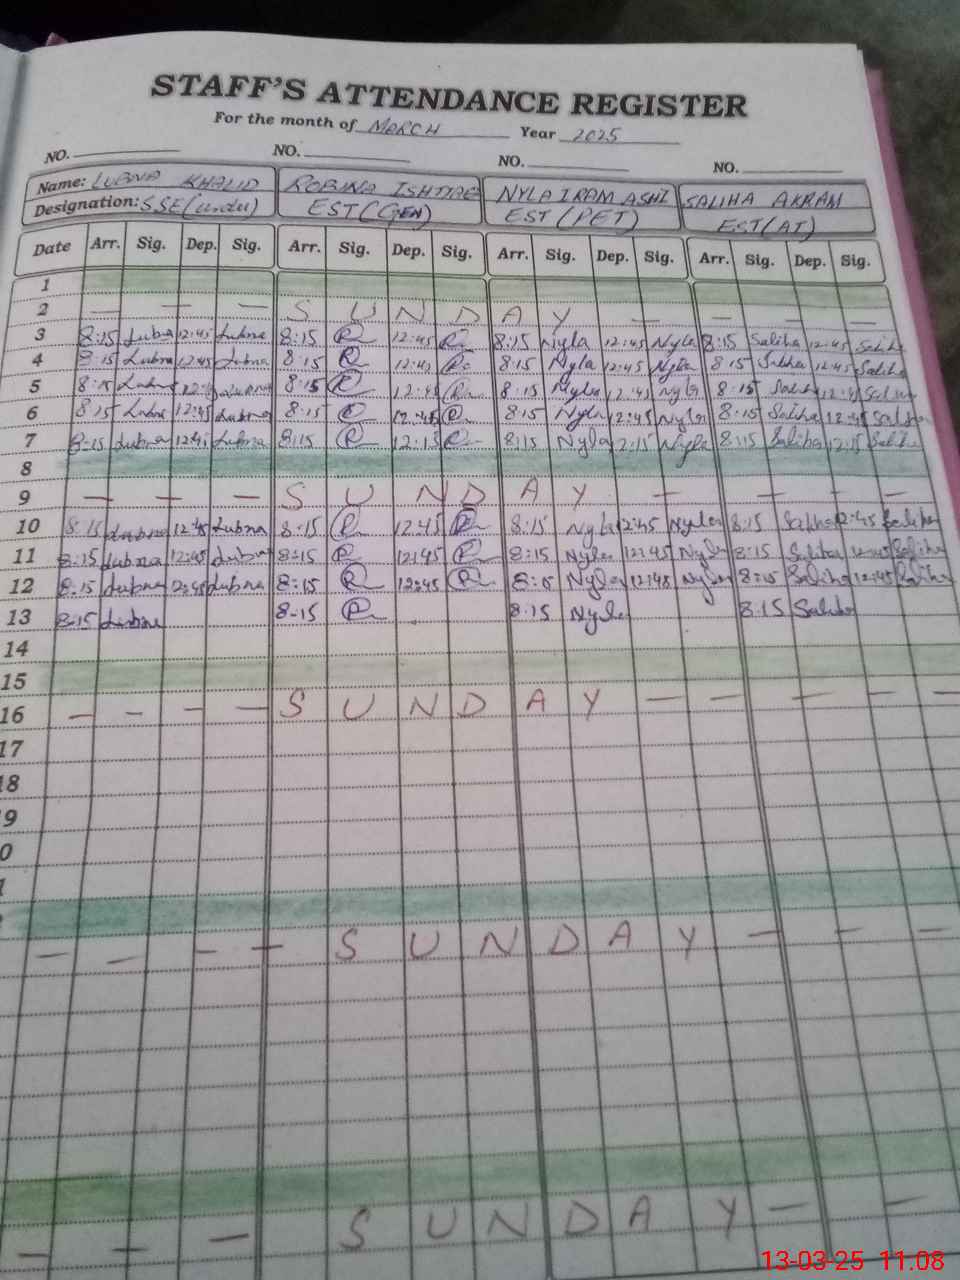 STAFF'S ATTENDANCE REGISTER
For the month of MARCH Year 2025
NO. NO. NO. NO.
Name: LUBNA KHALID ROBINA ISHTIAQ NYLA IRAM ASHI SALIHA AKRAM
Designation: SSE(Urdu) EST(GEN) EST(PET) EST(AT)
Date Arr. Sig. Dep. Sig. Arr. Sig. Dep. Sig. Arr. Sig. Dep. Sig. Arr. Sig. Dep. Sig.
1
2 — — — S U N D A Y — — — —
3 8:15 Lubna 12:45 Lubna 8:15 R 12:45 R 8:15 Nyla 12:45 Nyla 8:15 Saliha 12:45 Saliha
4 8:15 Lubna 12:45 Lubna 8:15 R 12:45 R 8:15 Nyla 12:45 Nyla 8:15 Saliha 12:45 Saliha
5 8:15 Lubna Lubna 8:15 R 12:45 R 8:15 Nyla 12:45 Nyla 8:15 Saliha 12:45 Saliha
6 8:15 Lubna 12:45 Lubna 8:15 R 12:45 R 8:15 Nyla 12:45 Nyla 8:15 Saliha 12:45 Saliha
7 8:15 Lubna Lubna 8:15 R 12:15 R 8:15 Nyla 12:15 Nyla 8:15 Saliha 12:15 Saliha
8
9 — — — S U N D A Y — — — —
10 8:15 Lubna 12:45 Lubna 8:15 R 12:45 R 8:15 Nyla 12:45 Nyla 8:15 Saliha 12:45 Saliha
11 8:15 Lubna 12:45 Lubna 8:15 R 12:45 R 8:15 Nyla 12:45 Nyla 8:15 Saliha 12:45 Saliha
12 8:15 Lubna 12:45 Lubna 8:15 R 12:45 R 8:15 Nyla 12:45 Nyla 8:15 Saliha 12:45 Saliha
13 8:15 Lubna 8-15 R 8:15 Nyla 8:15 Saliha
14
15
16 — — — — S U N D A Y — — — — —
17
18
9
0
— — — — S U N D A Y — — —
— — — S U N D A Y — —
13-03-25 11.08